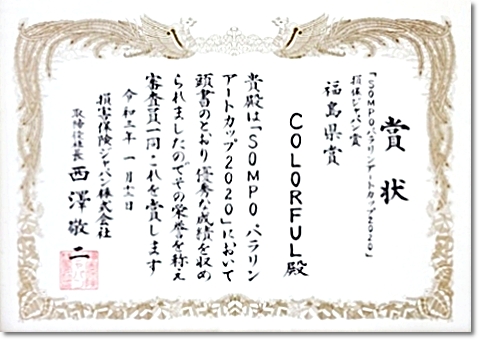 賞状
「SOMPOパラリンアートカップ2020」
損保ジャパン賞
福島県賞
COLORFUL殿
貴殿は「SOMPOパラリン
アートカップ2020」において
頭書のとおり優秀な成績を収め
られましたのでその栄誉を称え
審査員一同これを賞します
令和三年 一月十三日
損害保険ジャパン株式会社
取締役社長 西澤敬二